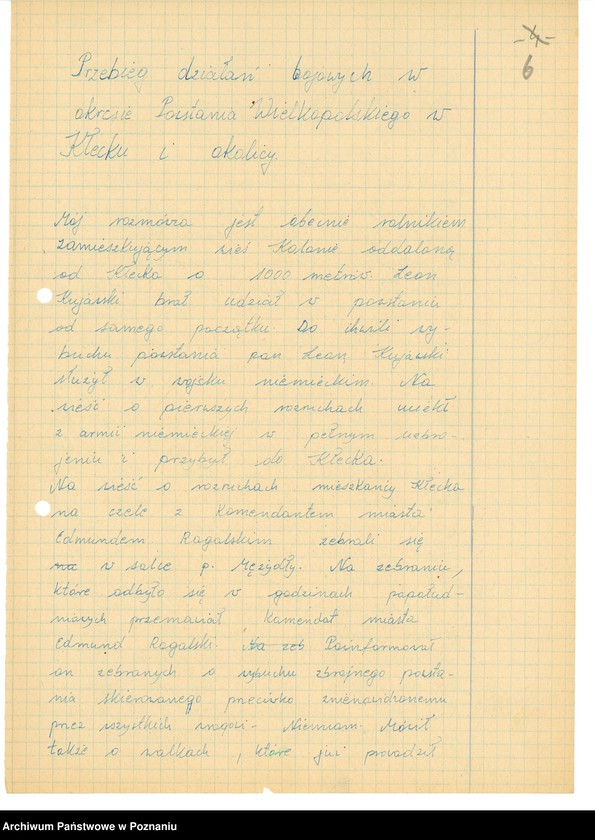 -4-
6
Przebieg działań bojowych w
okresie Powstania Wielkopolskiego w
Kłecku i okolicy.
Mój rozmówca jest obecnie rolnikiem
zamieszkującym wieś Kolanię oddaloną
od Kłecka o 1000 metrów. Leon
Kujawski brał udział w powstaniu
od samego początku Do chwili wy-
buchu powstania pan Leon Kujawski
służył w wojsku niemieckim. Na
wieść o pierwszych rozruchach uciekł
z armii niemieckiej w pełnym uzbro-
jeniu i przybył do Kłecka.
Na wieść o rozruchach mieszkańcy Kłecka
na czele z Komendantem miasta
Edmundem Rogalskim zebrali się
na w salce p. Mężydły. Na zebraniu,
które odbyło się w godzinach popołud-
niowych przemawiał Komendat miasta
Edmund Rogalski. Na zeb Poinformował
on zebranych o wybuchu zbrojnego powsta-
nia skierowanego przeciwko znienawidzonemu
przez wszystkich wrogowi - Niemcom. Mówił
także o walkach, które już prowadził
Archiwum Państwowe w Poznaniu